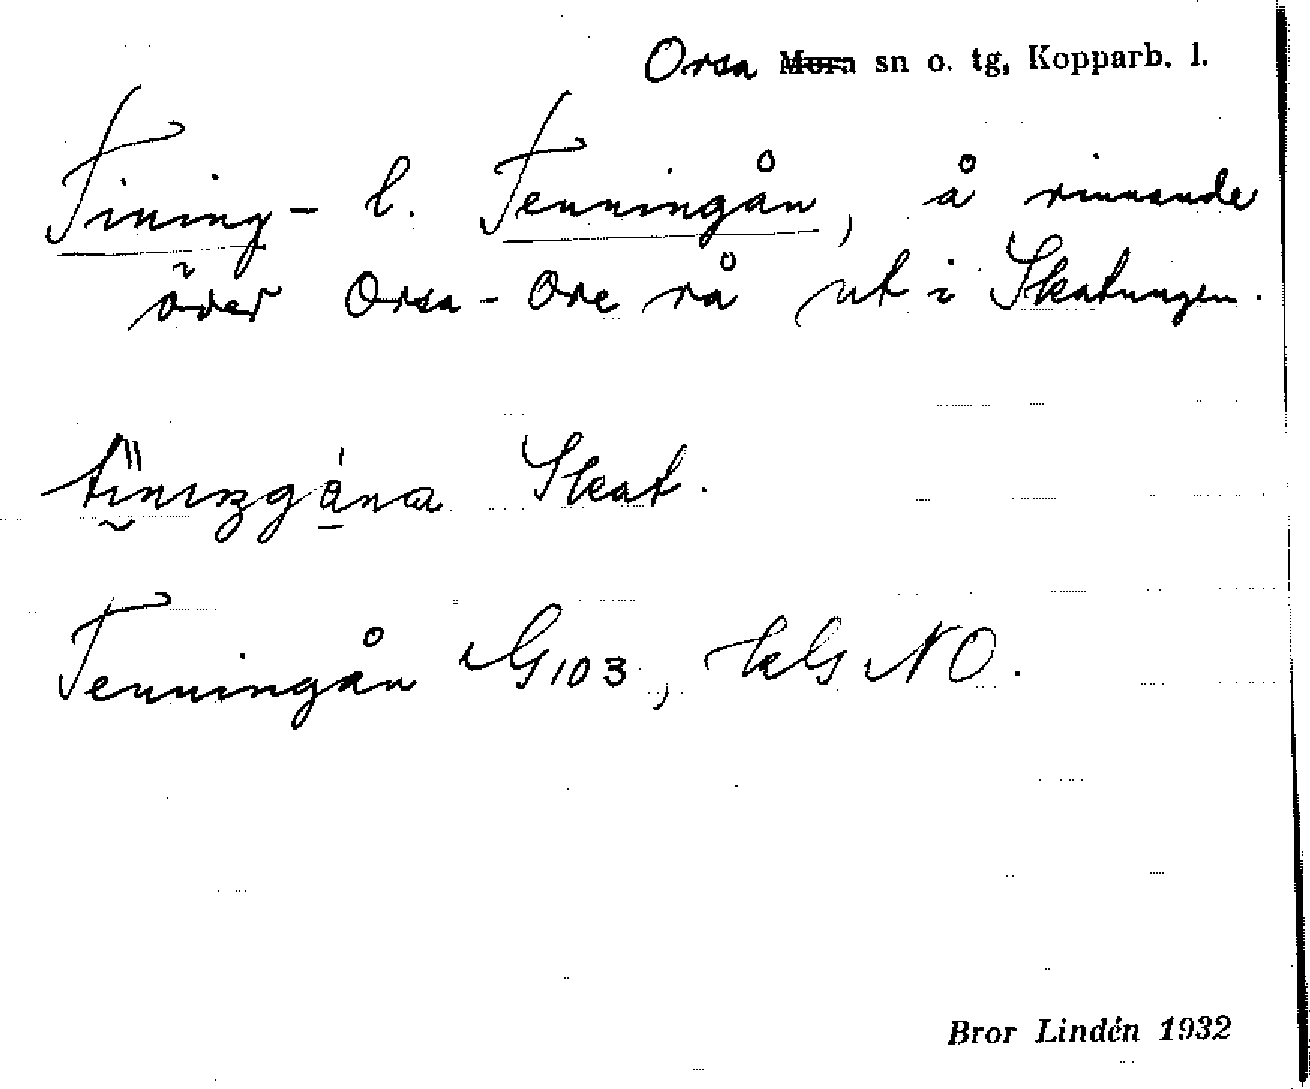 Orsa Mora sn o. tg, Kopparb. l.
Tining- l. Tenningån, å rinnande
över Orsa-Ore rå ut i Skatungen.
Skat.
Tenningån G103, NO.
Bror Lindén 1932